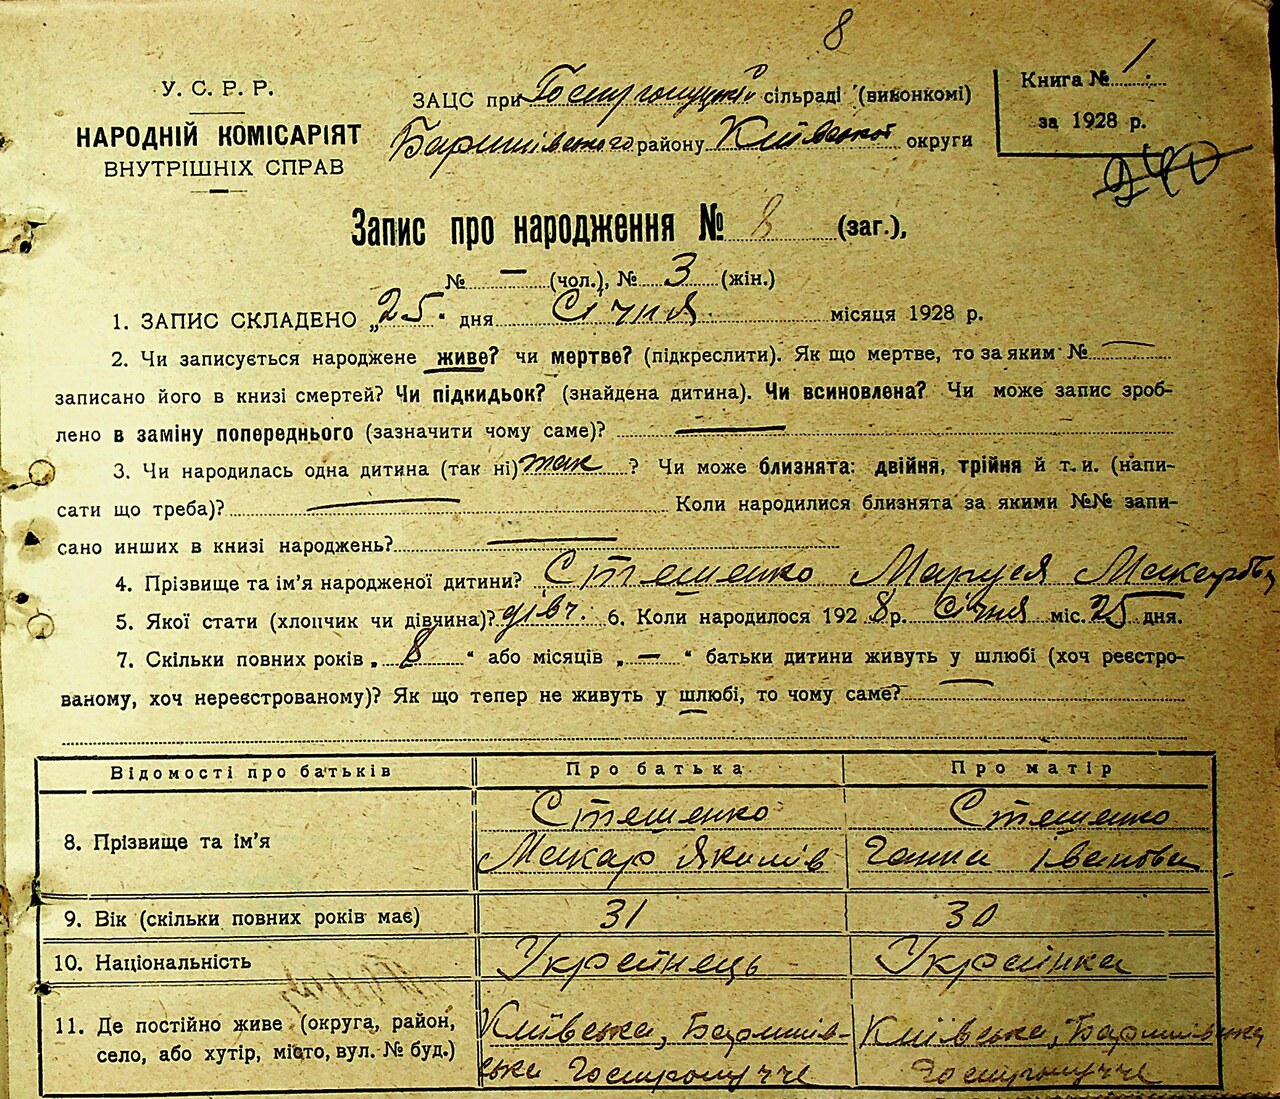 8
У. С. Р. Р.
НАРОДНІЙ КОМІСАРІЯТ
ВНУТРІШНІХ СПРАВ
ЗАЦС при Гостролуцькій сільраді (виконкомі)
Баришівського району Київської округи
Книга № 1
за 1928 р.
240
Запис про народження № 8 (заг.),
№ — (чол.), № 3 (жін.)
1. ЗАПИС СКЛАДЕНО „25. дня Січня місяця 1928 р.
2. Чи записується народжене живе? чи мертве? (підкреслити). Як що мертве, то за яким № —
записано його в книзі смертей? Чи підкидьок? (знайдена дитина). Чи всиновлена? Чи може запис зроб-
лено в заміну попереднього (зазначити чому саме)? —
3. Чи народилась одна дитина (так ні) так ? Чи може близнята: двійня, трійня й т. и. (напи-
сати що треба)? — Коли народилися близнята за якими №№ запи-
сано инших в книзі народжень? —
4. Прізвище та ім'я народженої дитини? Стешенко Маруся Макарівна
5. Якої стати (хлопчик чи дівчина)? дівч. 6. Коли народилося 1928 р. Січня міс. 25 дня.
7. Скільки повних років „ 8 “ або місяців „ — “ батьки дитини живуть у шлюбі (хоч реєстро-
ваному, хоч нереєстрованому)? Як що тепер не живуть у шлюбі, то чому саме?
Відомості про батьків Про батька Про матір
8. Прізвище та ім'я Стешенко Макар Якимів Стешенко Ганна Іванова
9. Вік (скільки повних років має) 31 30
10. Національність Українець Українка
11. Де постійно живе (округа, район, Київська, Баришів- Київська, Баришівська
село, або хутір, місто, вул. № буд.) ська Гостролуччє Гостролуччє